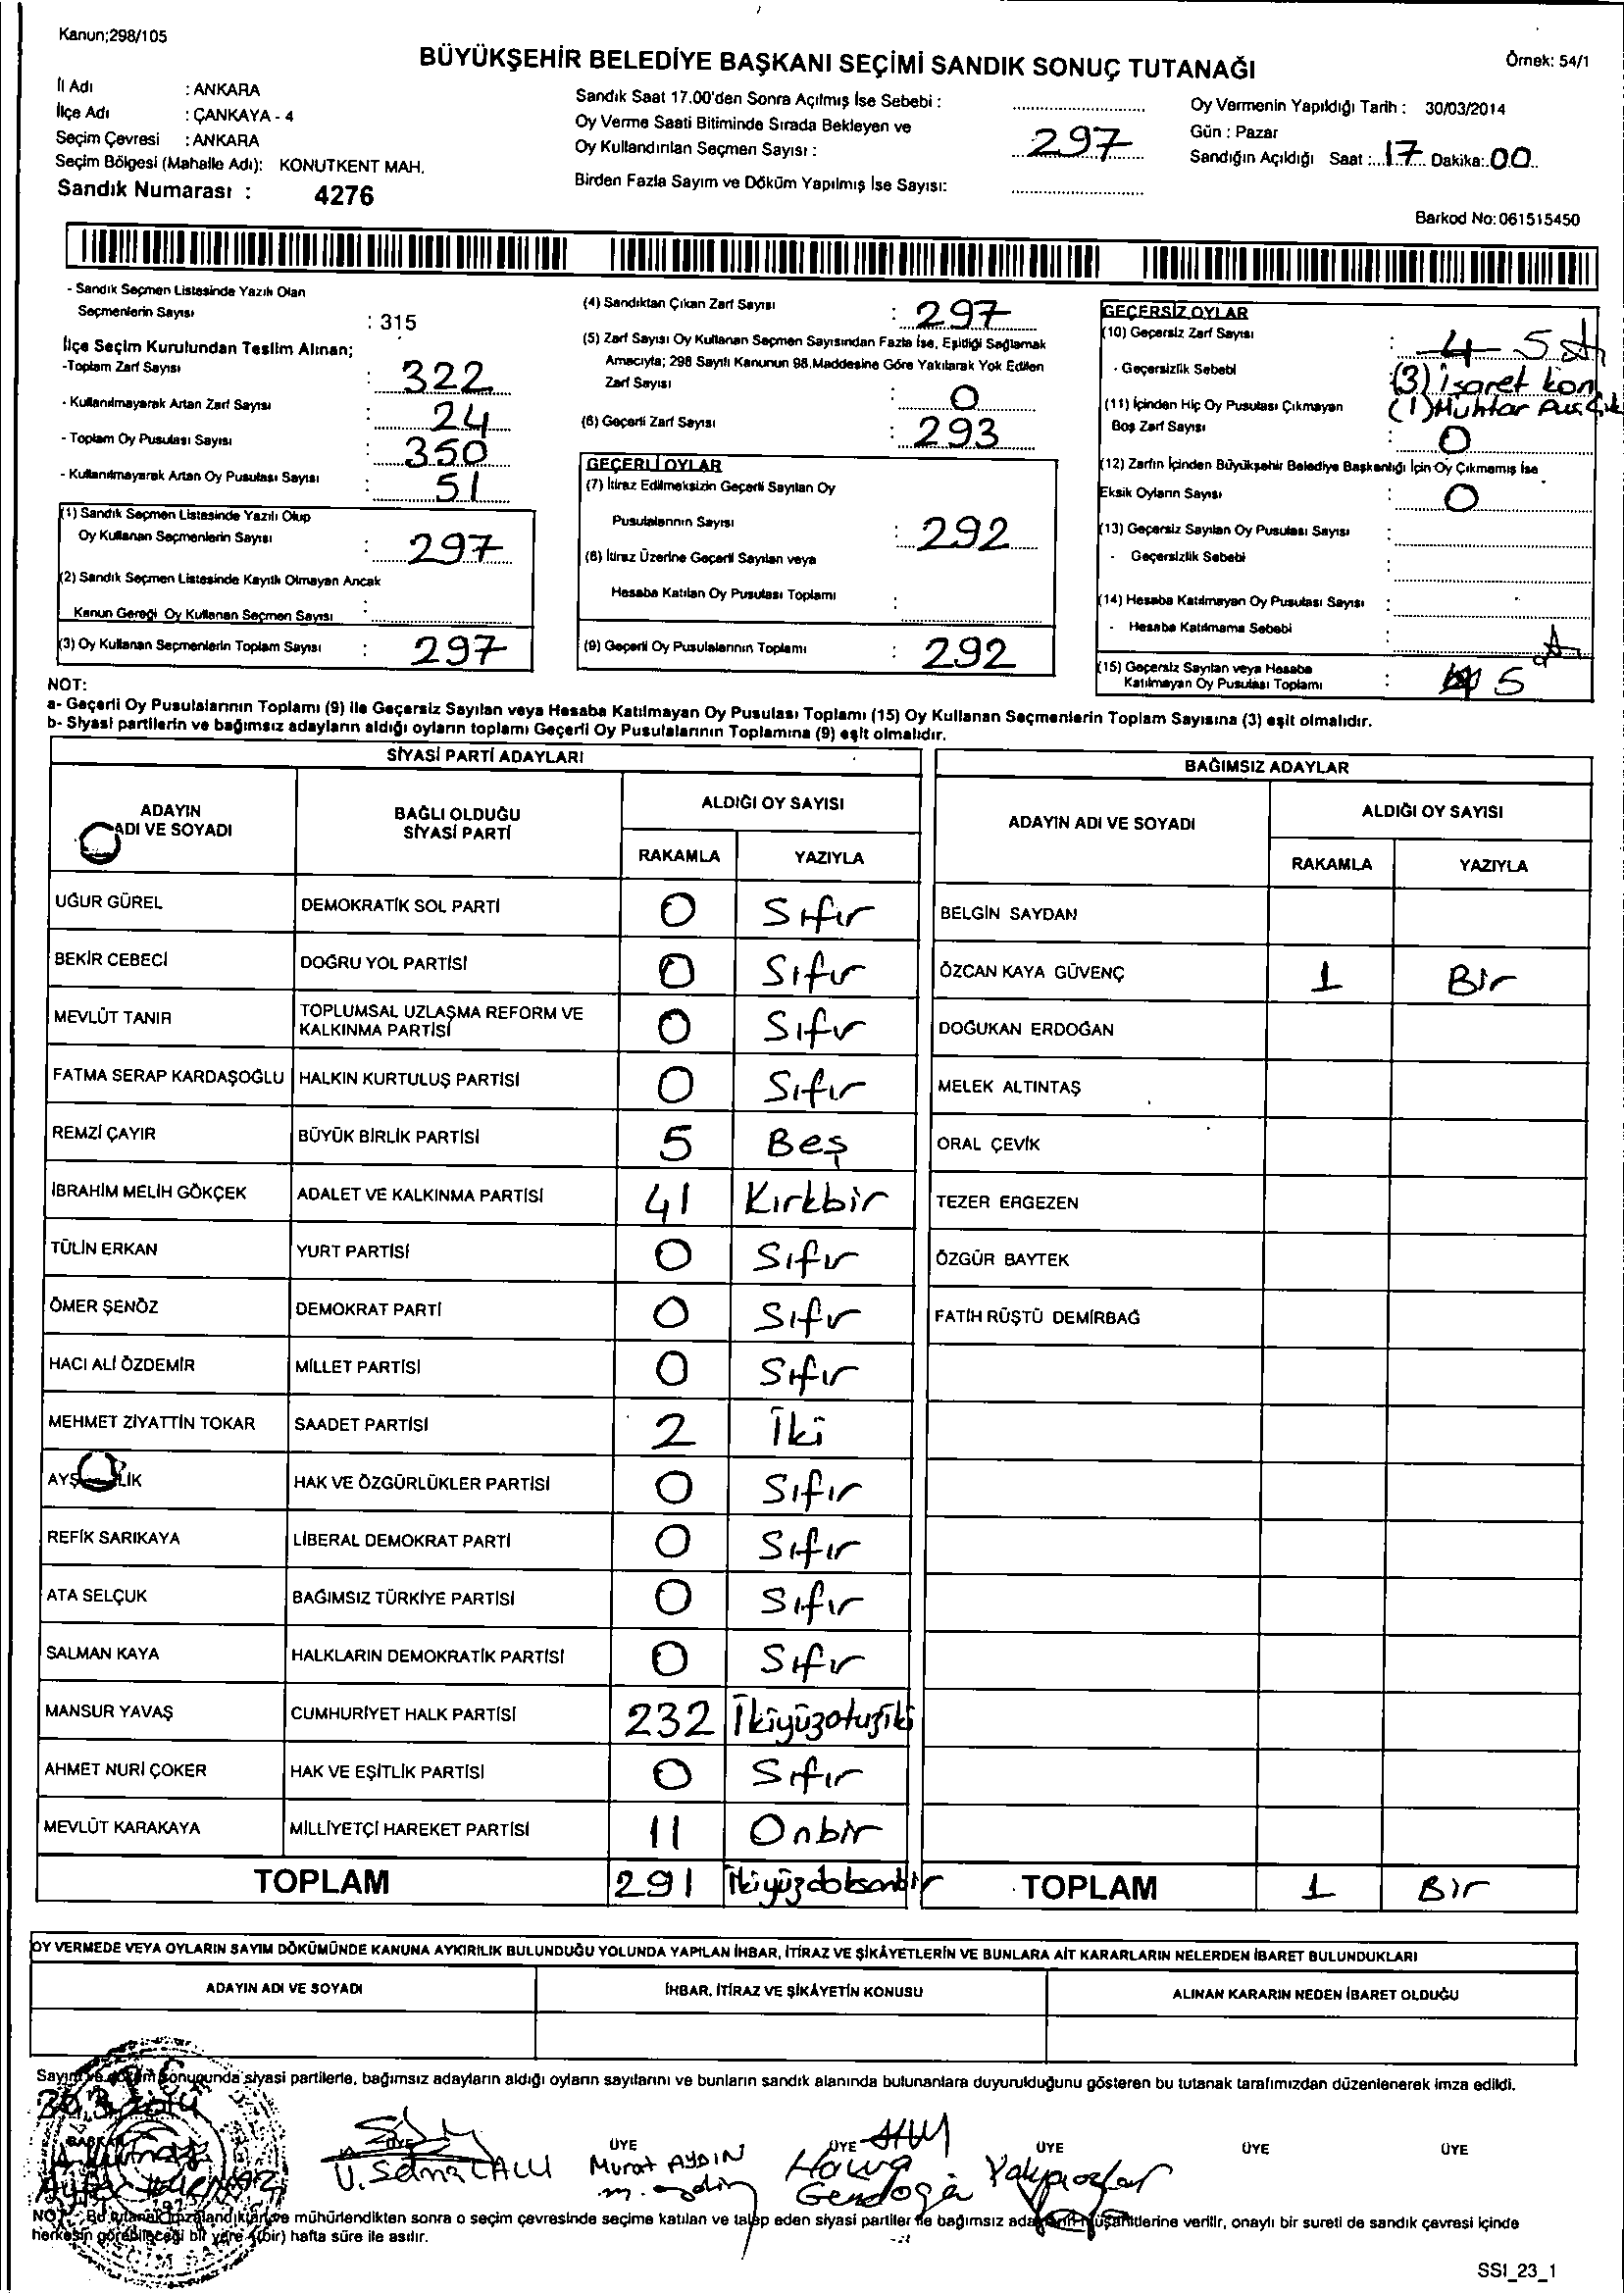 Kanun;298/105
BÜYÜKŞEHİR BELEDİYE BAŞKANI SEÇİMİ SANDIK SONUÇ TUTANAĞI
Örnek: 54/1
İl Adı : ANKARA
İlçe Adı : ÇANKAYA - 4
Seçim Çevresi : ANKARA
Seçim Bölgesi (Mahalle Adı): KONUTKENT MAH.
Sandık Numarası : 4276
Sandık Saat 17.00'den Sonra Açılmış İse Sebebi :
Oy Verme Saati Bitiminde Sırada Bekleyen ve
Oy Kullandırılan Seçmen Sayısı : 297
Birden Fazla Sayım ve Döküm Yapılmış İse Sayısı:
Oy Vermenin Yapıldığı Tarih : 30/03/2014
Gün : Pazar
Sandığın Açıldığı Saat : 17 Dakika: 00
Barkod No: 061515450
- Sandık Seçmen Listesinde Yazılı Olan
Seçmenlerin Sayısı : 315
İlçe Seçim Kurulundan Teslim Alınan;
-Toplam Zarf Sayısı : 322
- Kullanılmayarak Artan Zarf Sayısı : 24
- Toplam Oy Pusulası Sayısı : 350
- Kullanılmayarak Artan Oy Pusulası Sayısı : 51
(1) Sandık Seçmen Listesinde Yazılı Olup
Oy Kullanan Seçmenlerin Sayısı : 297
(2) Sandık Seçmen Listesinde Kayıtlı Olmayan Ancak
Kanun Gereği Oy Kullanan Seçmen Sayısı :
(3) Oy Kullanan Seçmenlerin Toplam Sayısı : 297
(4) Sandıktan Çıkan Zarf Sayısı : 297
(5) Zarf Sayısı Oy Kullanan Seçmen Sayısından Fazla İse, Eşitliği Sağlamak
Amacıyla; 298 Sayılı Kanunun 98.Maddesine Göre Yakılarak Yok Edilen
Zarf Sayısı : 0
(6) Geçerli Zarf Sayısı : 293
GEÇERLİ OYLAR
(7) İtiraz Edilmeksizin Geçerli Sayılan Oy
Pusulalarının Sayısı : 292
(8) İtiraz Üzerine Geçerli Sayılan veya
Hesaba Katılan Oy Pusulası Toplamı :
(9) Geçerli Oy Pusulalarının Toplamı : 292
GEÇERSİZ OYLAR
(10) Geçersiz Zarf Sayısı : 4 5
- Geçersizlik Sebebi : (3) işaret kon
(1) Muhtar
(11) İçinden Hiç Oy Pusulası Çıkmayan
Boş Zarf Sayısı : 0
(12) Zarfın İçinden Büyükşehir Belediye Başkanlığı İçin Oy Çıkmamış İse
Eksik Oyların Sayısı : 0
(13) Geçersiz Sayılan Oy Pusulası Sayısı :
- Geçersizlik Sebebi :
(14) Hesaba Katılmayan Oy Pusulası Sayısı :
- Hesaba Katılmama Sebebi :
(15) Geçersiz Sayılan veya Hesaba
Katılmayan Oy Pusulası Toplamı : 5
NOT:
a- Geçerli Oy Pusulalarının Toplamı (9) ile Geçersiz Sayılan veya Hesaba Katılmayan Oy Pusulası Toplamı (15) Oy Kullanan Seçmenlerin Toplam Sayısına (3) eşit olmalıdır.
b- Siyasi partilerin ve bağımsız adayların aldığı oyların toplamı Geçerli Oy Pusulalarının Toplamına (9) eşit olmalıdır.
SİYASİ PARTİ ADAYLARI
ADAYIN ADI VE SOYADI
BAĞLI OLDUĞU SİYASİ PARTİ
ALDIĞI OY SAYISI
RAKAMLA YAZIYLA
UĞUR GÜREL DEMOKRATİK SOL PARTİ 0 Sıfır
BEKİR CEBECİ DOĞRU YOL PARTİSİ 0 Sıfır
MEVLÜT TANIR TOPLUMSAL UZLAŞMA REFORM VE KALKINMA PARTİSİ 0 Sıfır
FATMA SERAP KARDAŞOĞLU HALKIN KURTULUŞ PARTİSİ 0 Sıfır
REMZİ ÇAYIR BÜYÜK BİRLİK PARTİSİ 5 Beş
İBRAHİM MELİH GÖKÇEK ADALET VE KALKINMA PARTİSİ 41 Kırkbir
TÜLİN ERKAN YURT PARTİSİ 0 Sıfır
ÖMER ŞENÖZ DEMOKRAT PARTİ 0 Sıfır
HACI ALİ ÖZDEMİR MİLLET PARTİSİ 0 Sıfır
MEHMET ZİYATTİN TOKAR SAADET PARTİSİ 2 İki
HAK VE ÖZGÜRLÜKLER PARTİSİ 0 Sıfır
REFİK SARIKAYA LİBERAL DEMOKRAT PARTİ 0 Sıfır
ATA SELÇUK BAĞIMSIZ TÜRKİYE PARTİSİ 0 Sıfır
SALMAN KAYA HALKLARIN DEMOKRATİK PARTİSİ 0 Sıfır
MANSUR YAVAŞ CUMHURİYET HALK PARTİSİ 232 İkiyüzotuziki
AHMET NURİ ÇOKER HAK VE EŞİTLİK PARTİSİ 0 Sıfır
MEVLÜT KARAKAYA MİLLİYETÇİ HAREKET PARTİSİ 11 Onbir
TOPLAM 291 İkiyüzdoksanbir
BAĞIMSIZ ADAYLAR
ADAYIN ADI VE SOYADI
ALDIĞI OY SAYISI
RAKAMLA YAZIYLA
BELGİN SAYDAN
ÖZCAN KAYA GÜVENÇ 1 Bir
DOĞUKAN ERDOĞAN
MELEK ALTINTAŞ
ORAL ÇEVİK
TEZER ERGEZEN
ÖZGÜR BAYTEK
FATİH RÜŞTÜ DEMİRBAĞ
TOPLAM 1 Bir
OY VERMEDE VEYA OYLARIN SAYIM DÖKÜMÜNDE KANUNA AYKIRILIK BULUNDUĞU YOLUNDA YAPILAN İHBAR, İTİRAZ VE ŞİKÂYETLERİN VE BUNLARA AİT KARARLARIN NELERDEN İBARET BULUNDUKLARI
ADAYIN ADI VE SOYADI
İHBAR, İTİRAZ VE ŞİKÂYETİN KONUSU
ALINAN KARARIN NEDEN İBARET OLDUĞU
Sayım ve döküm sonucunda siyasi partilerle, bağımsız adayların aldığı oyların sayılarını ve bunların sandık alanında bulunanlara duyurulduğunu gösteren bu tutanak tarafımızdan düzenlenerek imza edildi.
30.3.2014
BAŞKAN ÜYE ÜYE ÜYE ÜYE ÜYE ÜYE
Murat AYDIN
m. aydın
NOT:- Bu tutanak imzalandıktan ve mühürlendikten sonra o seçim çevresinde seçime katılan ve talep eden siyasi partiler ile bağımsız adayların müşahitlerine verilir, onaylı bir sureti de sandık çevresi içinde
herkesin görebileceği bir yere (bir) hafta süre ile asılır.
SSI_23_1